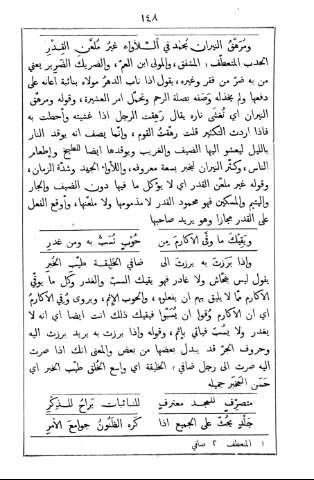 ١٤٨
ومُرهَّقُ النيرانِ يُحمَد في اللأواء غيرُ مُلعَّنِ القِدْرِ
الحدب المتعطف١ المشفق، والمولى ابن العمّ، والضريك الضرير يعني
من به ضرّ من فقر وغيره، يقول اذا ناب الدهرُ مولاه بنائبة اعانه على
دفعها ولم يخذله وَصَفه بصلة الرحم وتحمّل امر العشيرة، وقوله ومرهّق
النيران اي تُغشَى ناره يقال رهِقت الرجل اذا غشيته واحطت به
فاذا اردت التكثير قلت رهّقت القوم، وانّما يصف انه يوقد النار
بالليل ليعشو اليها الضيف والغريب ويوقدها ايضا للطبخ واطعام
الناس، وكثّر النيران ليخبر بسعة معروفه، واللأواء الجهد وشدّة الزمان،
وقوله غير ملعّن القدر اي لا يوكل ما فيها دون الضيف والجار
واليتيم والمسكين فهو محمود القدر لا مذمومها ولا ملعّنها، وأوقع الفعل
على القدر مجازا وهو يريد صاحبها
ويَقِيكَ ما وَقَّى الأكارمَ مِن حُوبٍ تُسَبُّ به ومن غدرِ
واذا بَرَزتَ به برزتَ الى صافي الخليقة طيّب الخُبرِ
يقول ليس بفحّاش ولا غادر فهو يقيك السبّ والغدر وكل ما يوقّى
الأكارم ممّا لا يليق بهم ان يفعلوه، والحوب الإثم، ويروى وُقِي الأكارمُ
اي ان الأكارم وُقوا ان يُسَبّوا فيقيك ذلك انت ايضا اي انه لا
يغدر ولا يسُبّ فيأتي بإثم، وقوله واذا برزت به يريد برزت اليه
وحروف الجرّ قد يبدل بعضها من بعض والمعنى انك اذا صرت
اليه صرت الى رجل صافي٢ الخليقة اي واسع الخُلق طيّب الخبر اي
حَسَن المَخبَر جميله
متصرّفٍ للمجد معترفٍ للنائبات يَراحُ للذِكْرِ
جَلْدٍ يحُثّ على الجميع اذا كره الظَنُونُ جوامعَ الأمرِ
١ المنعطف ٢ صافي